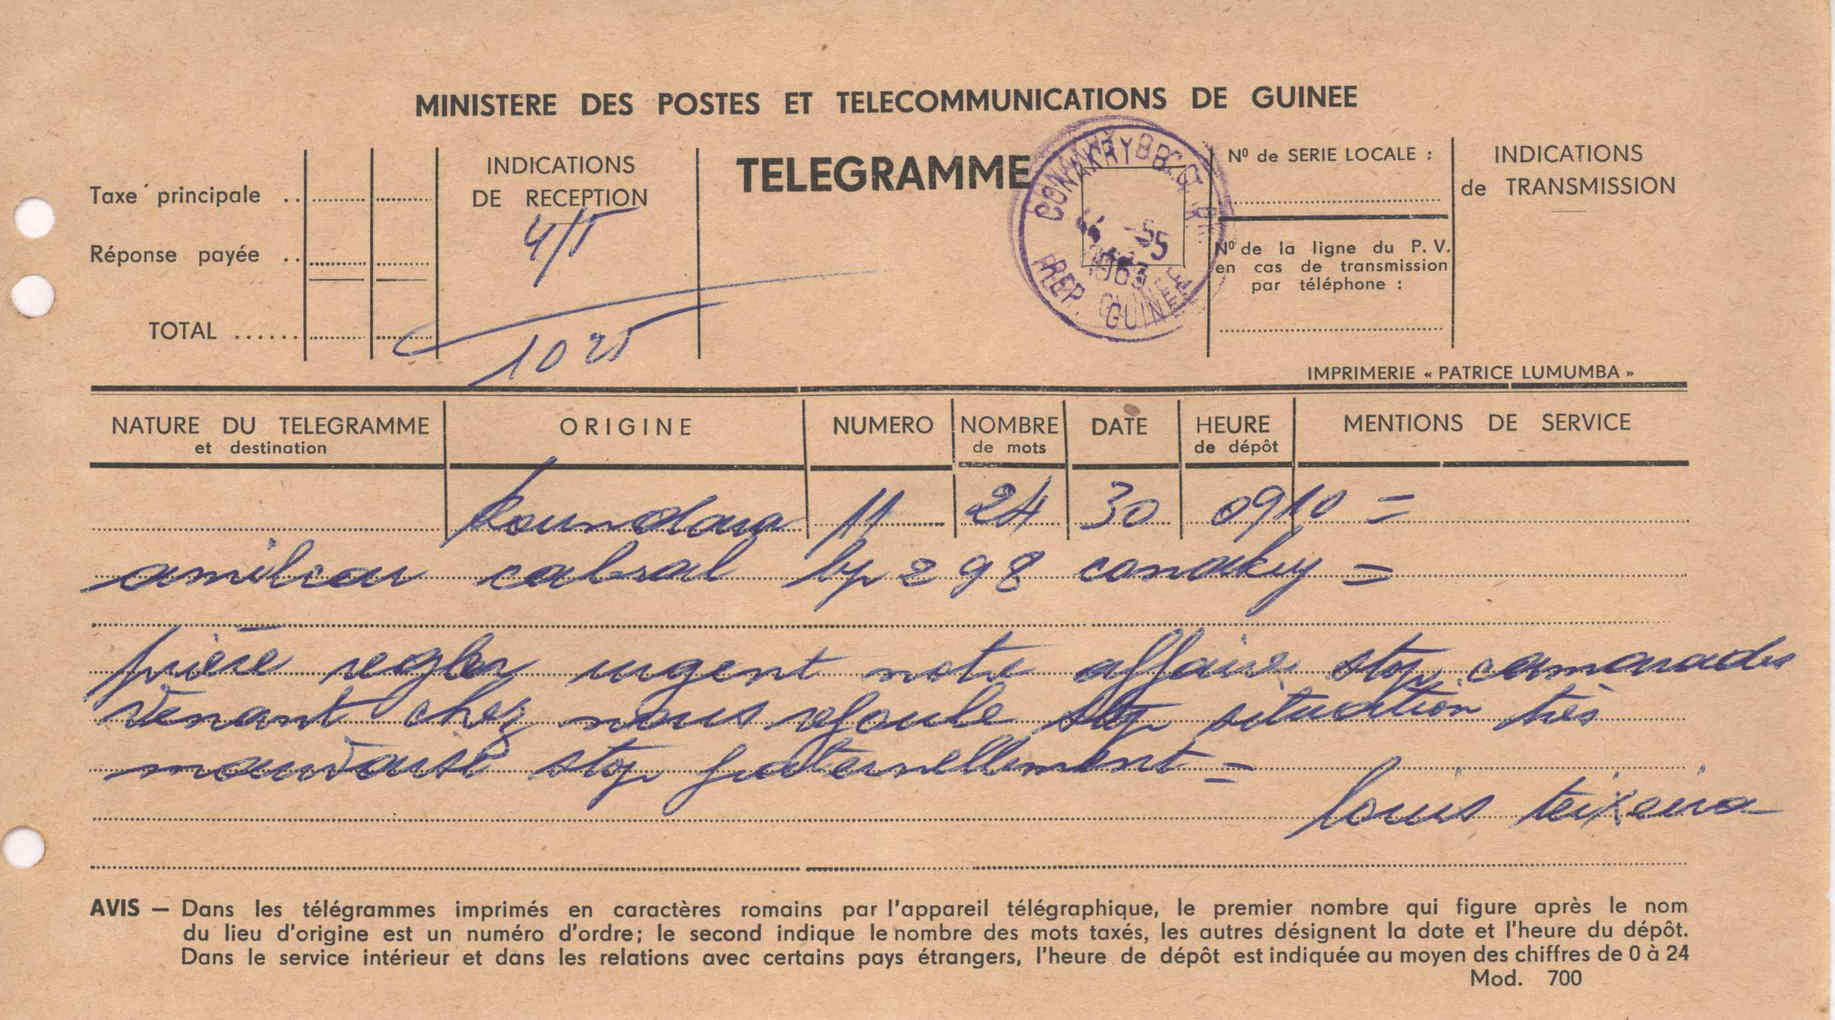 MINISTERE DES POSTES ET TELECOMMUNICATIONS DE GUINEE
Taxe principale ..
Réponse payée ..
TOTAL ......
INDICATIONS
DE RECEPTION
4/5
1025
TELEGRAMME
CONAKRY
1963
REP. GUINEE
N° de SERIE LOCALE :
N° de la ligne du P. V.
en cas de transmission
par téléphone :
INDICATIONS
de TRANSMISSION
IMPRIMERIE « PATRICE LUMUMBA »
NATURE DU TELEGRAMME
et destination
ORIGINE
NUMERO
NOMBRE
de mots
DATE
HEURE
de dépôt
MENTIONS DE SERVICE
koundara 11 24 30 0910 =
amilcar cabral bp 298 conakry =
prière regler urgent notre affaire stop camarades
venant chez nous refoulé stop situation très
mauvaise stop fraternellement =
louis teixeira
AVIS — Dans les télégrammes imprimés en caractères romains par l'appareil télégraphique, le premier nombre qui figure après le nom
du lieu d'origine est un numéro d'ordre; le second indique le nombre des mots taxés, les autres désignent la date et l'heure du dépôt.
Dans le service intérieur et dans les relations avec certains pays étrangers, l'heure de dépôt est indiquée au moyen des chiffres de 0 à 24
Mod. 700